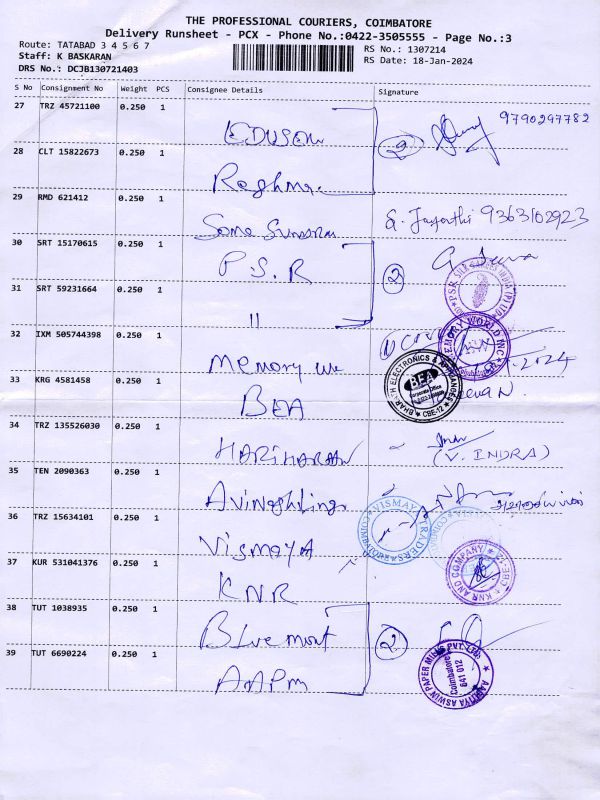 THE PROFESSIONAL COURIERS, COIMBATORE
Delivery Runsheet - PCX - Phone No.:0422-3505555 - Page No.:3
Route: TATABAD 3 4 5 6 7
Staff: K BASKARAN
DRS No.: DCJB130721403
RS No.: 1307214
RS Date: 18-Jan-2024
S No Consignment No Weight PCS Consignee Details Signature
27 TRZ 45721100 0.250 1
9790297782
28 CLT 15822673 0.250 1
2
29 RMD 621412 0.250 1
9363102923
30 SRT 15170615 0.250 1
P.S.R
2
31 SRT 59231664 0.250 1
"
32 IXM 505744398 0.250 1
Memory
MEMORY WORLD INC
33 KRG 4581458 0.250 1
BEA
BEA
Corporate Office
CBE-12
34 TRZ 135526030 0.250 1
HARIHARAN
(V. INDRA)
35 TEN 2090363 0.250 1
36 TRZ 15634101 0.250 1
VismayA
VISMAYA TRADERS
37 KUR 531041376 0.250 1
KNR
KNR AND COMPANY
38 TUT 1038935 0.250 1
Blue mount
2
39 TUT 6690224 0.250 1
AAPM
AADITYA ASWIN PAPER MILLS PVT. LTD.
Coimbatore
641 012